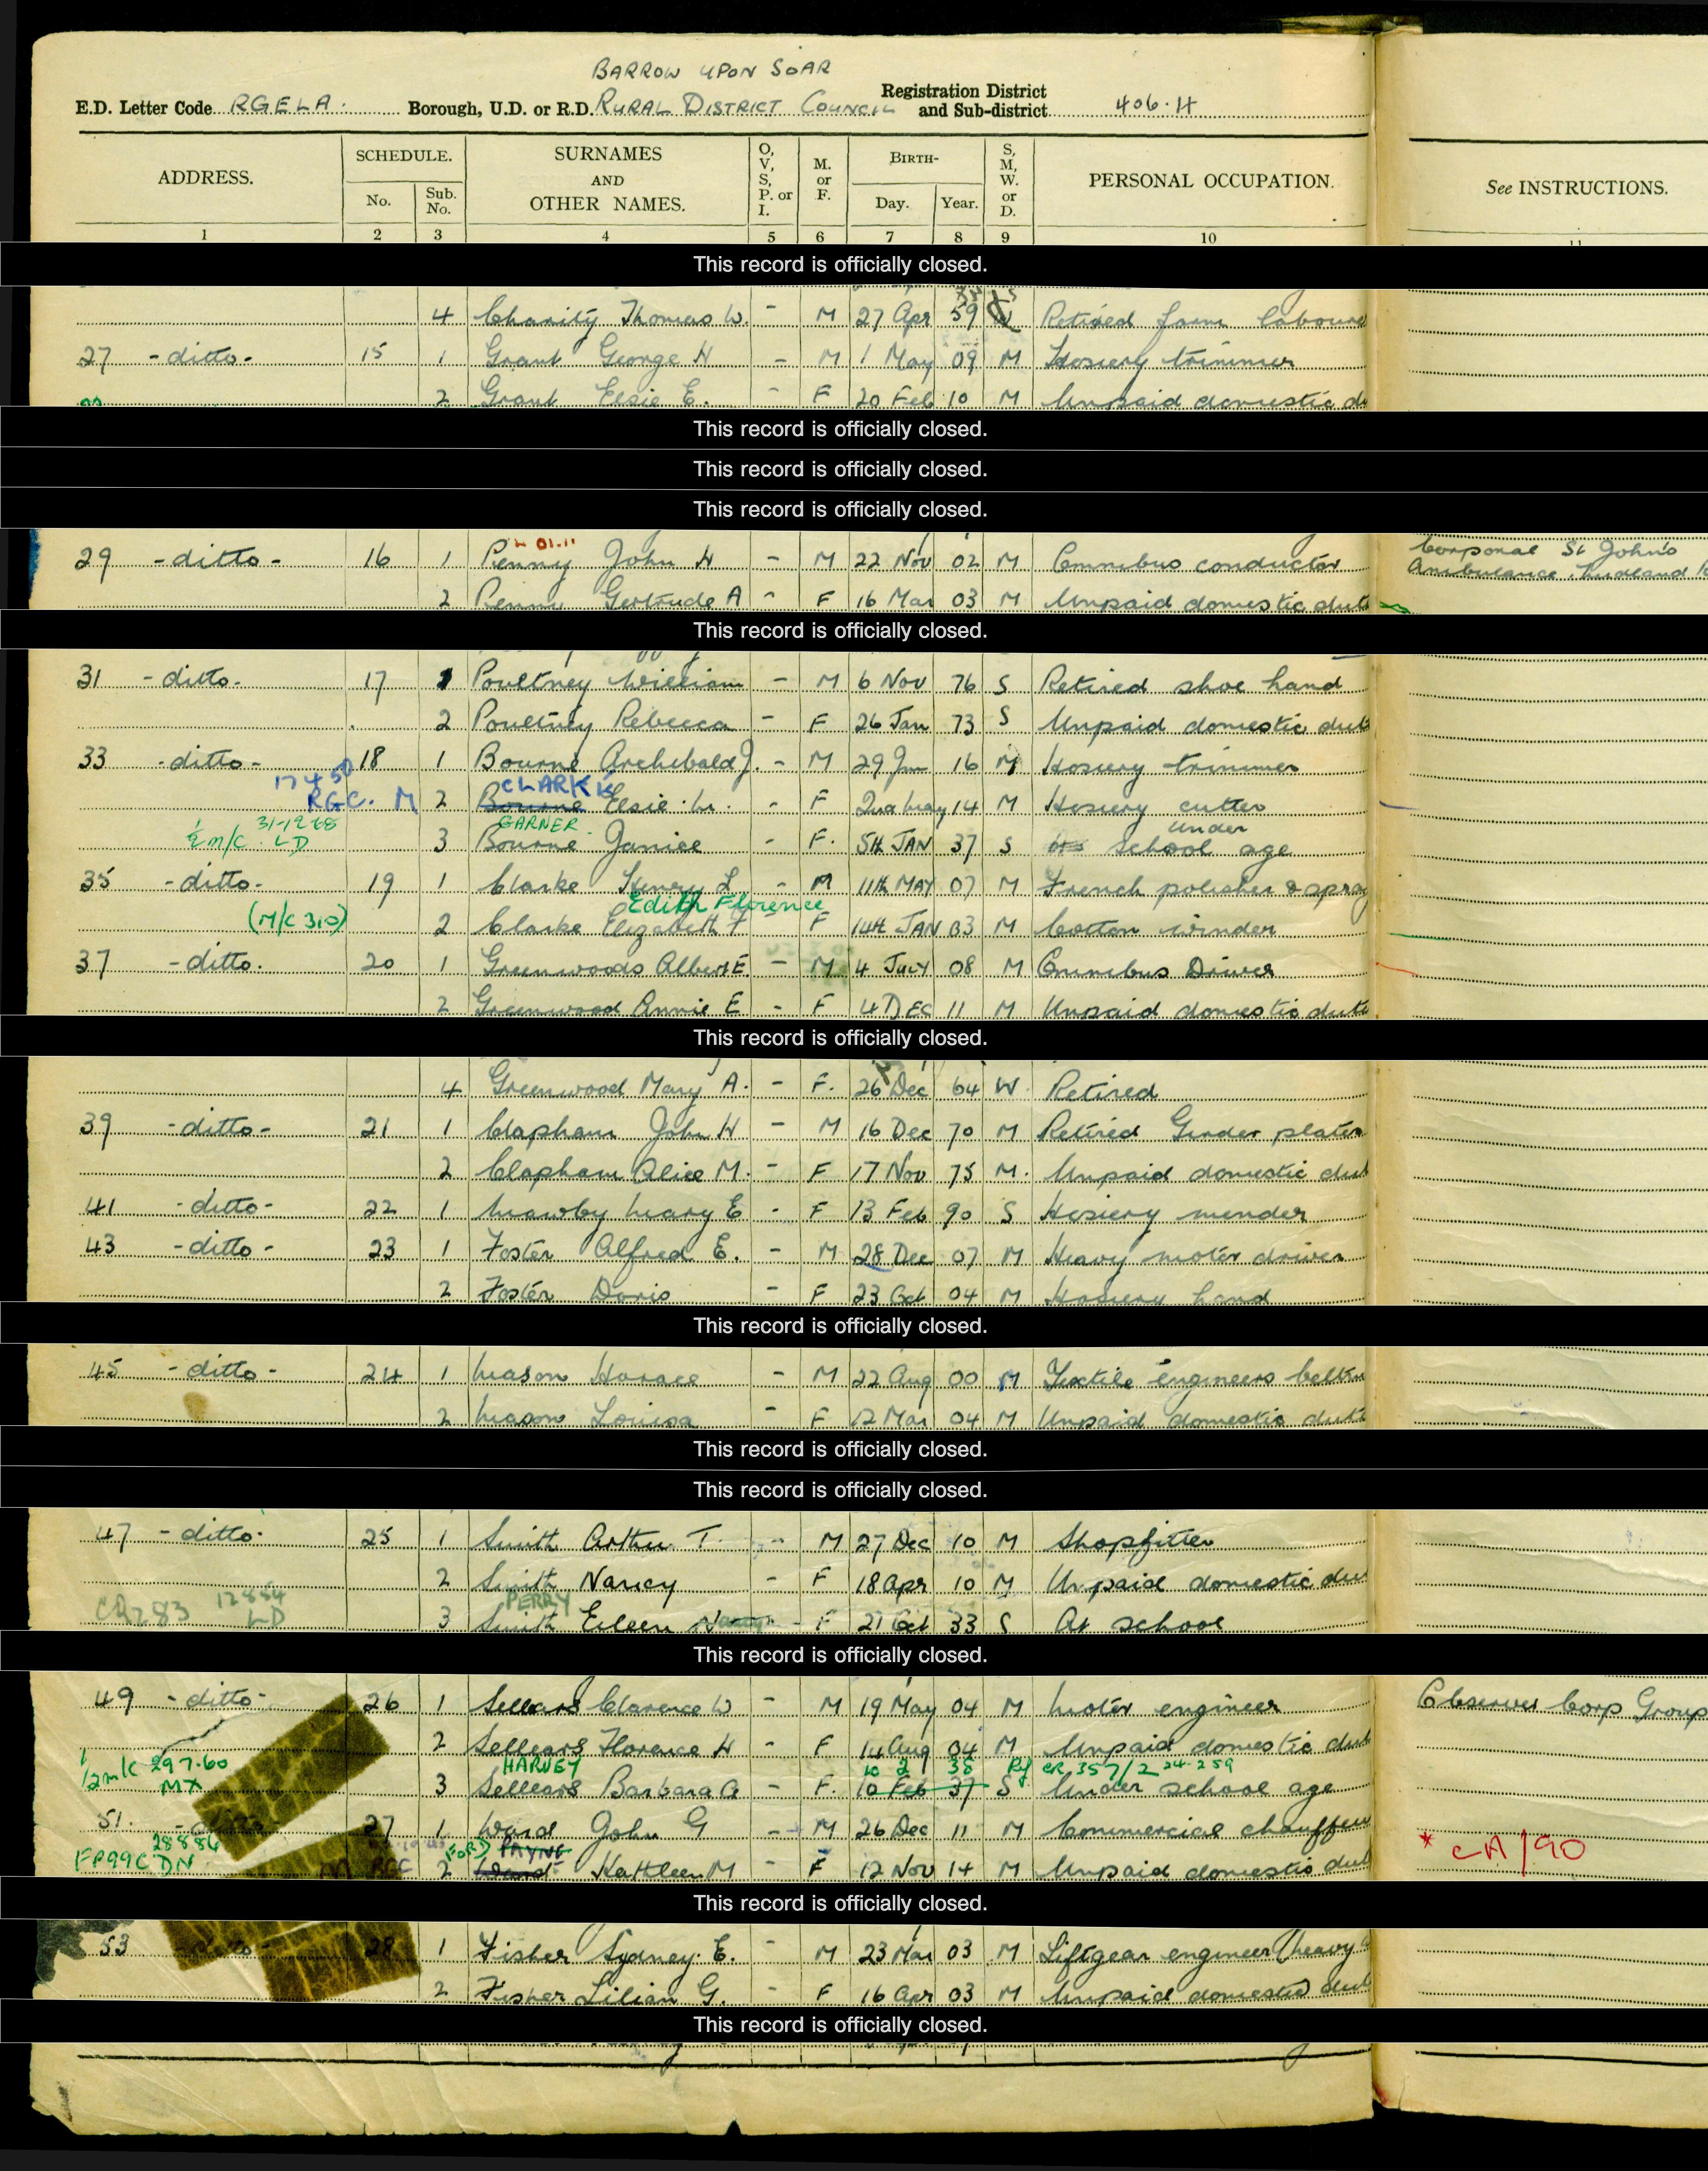 BARROW UPON SOAR
E.D. Letter Code RGELA. Borough, U.D. or R.D. RURAL DISTRICT COUNCIL Registration District and Sub-district 406.H
ADDRESS. SCHEDULE. No. Sub. No. SURNAMES AND OTHER NAMES. O, V, S, P. or I. M. or F. BIRTH- Day. Year. S, M, W. or D. PERSONAL OCCUPATION. See INSTRUCTIONS.
1 2 3 4 5 6 7 8 9 10 11
This record is officially closed.
4 Charity Thomas W. - M 27 Apr 59 Retired farm laboure
27 - ditto - 15 1 Grant George H - M 1 May 09 M Hosiery trimmer
2 Grant Elsie E. - F 20 Feb 10 M Unpaid domestic du
This record is officially closed.
This record is officially closed.
This record is officially closed.
29 - ditto - 16 1 Penny John H - M 22 Nov 02 M Omnibus conductor Corporal St John's
Ambulance, Midland
2 Penny Gertrude A - F 16 Mar 03 M Unpaid domestic dut
This record is officially closed.
31 - ditto - 17 1 Poultney William - M 6 Nov 76 S Retired shoe hand
2 Poultney Rebecca - F 26 Jan 73 S Unpaid domestic dut
33 - ditto - 18 1 Bourne Archebald J. - M 29 Jun 16 M Hosiery trimmer
17450 CLARKE
RGC. M 2 Bourne Elsie M. - F 2nd May 14 M Hosiery cutter
31-12 68 GARNER under
½ m/c. LD 3 Bourne Janice - F. 5th JAN 37 S school age
35 - ditto - 19 1 Clarke Henry L - M 11th MAY 07 M French polisher & spray
Edith Florence
(M/C 310) 2 Clarke Elizabeth F - F 14th JAN 03 M Cotton winder
37 - ditto. 20 1 Greenwoods Albert E. - M 4 July 08 M Omnibus Driver
2 Greenwood Annie E - F 4 DEC 11 M Unpaid domestic dut
This record is officially closed.
4 Greenwood Mary A. - F. 26 Dec 64 W. Retired
39 - ditto - 21 1 Clapham John H - M 16 Dec 70 M Retired Girder plater
2 Clapham Alice M. - F 17 Nov 75 M. Unpaid domestic dut
41 - ditto - 22 1 Mawby Mary E - F 13 Feb 90 S Hosiery mender
43 - ditto - 23 1 Foster Alfred E. - M 28 Dec 07 M Heavy motor driver
2 Foster Doris - F 23 Oct 04 M Hosiery hand
This record is officially closed.
45 - ditto - 24 1 Mason Horace - M 22 Aug 00 M Textile engineers
2 Mason Louisa - F 12 Mar 04 M Unpaid domestic dut
This record is officially closed.
This record is officially closed.
47 - ditto - 25 1 Smith Arthur T. - M 27 Dec 10 M Shopfitter
2 Smith Nancy - F 18 Apr 10 M Unpaid domestic dut
CR283 12854 LD PERRY
3 Smith Eileen - F 21 Oct 33 S At school
This record is officially closed.
49 - ditto - 26 1 Sellears Clarence W - M 19 May 04 M Motor engineer Observer Corp Group
2 Sellears Florence H - F 14 Aug 04 M Unpaid domestic dut
½ m/c 297.60 MX HARVEY 10 2 38 CR 357/2 24.2 59
3 Sellears Barbara A - F. 10 Feb 37 S Under school age
51. - ditto 27 1 Ward John G - M 26 Dec 11 M Commercial chauffeur
28886 FORD PAYNE * CA/90
FP99C DN RGC 2 Ward Kathleen M - F 12 Nov 14 M Unpaid domestic dut
This record is officially closed.
53 ditto 28 1 Fisher Sydney E. - M 23 Mar 03 M Liftgear engineer (heavy
2 Fisher Lilian G. - F 16 Apr 03 M Unpaid domestic dut
This record is officially closed.